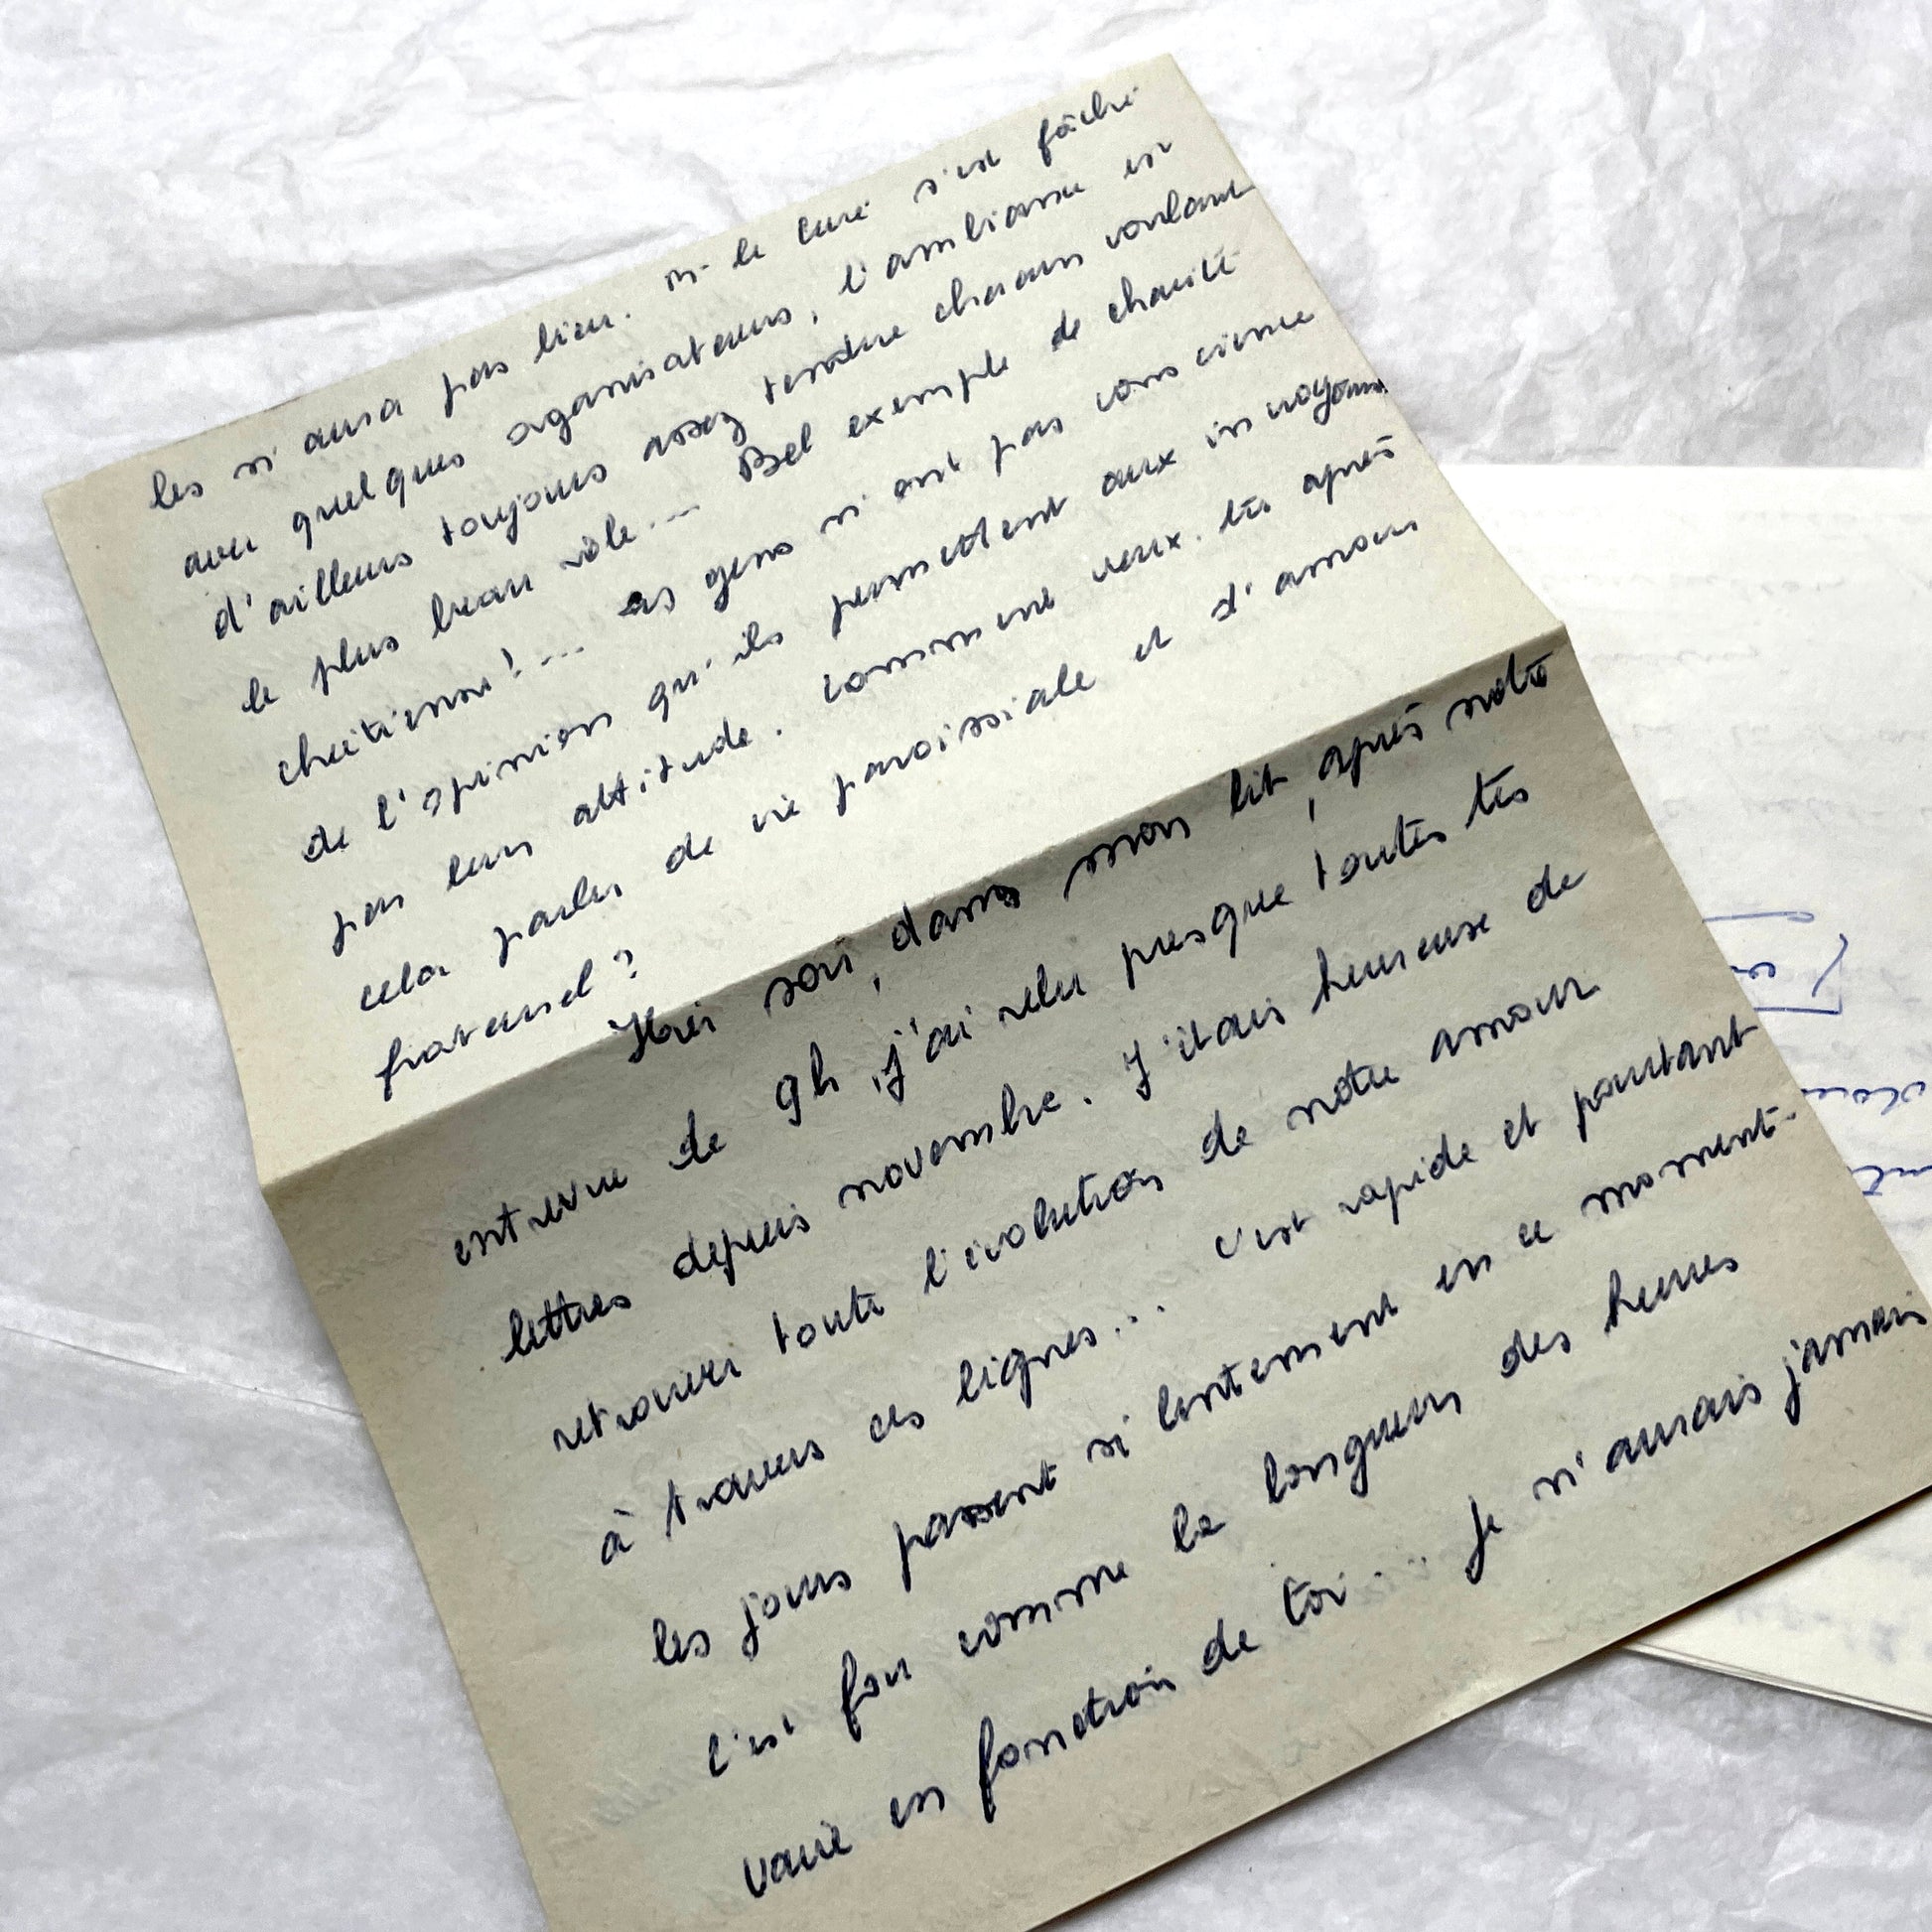 les n'aura pas lieu. M. le curé s'est fâché
avec quelques organisateurs, l'ambiance est
d'ailleurs toujours assez tendue chacun voulant
le plus beau rôle... Bel exemple de charité
chrétienne!... Les gens n'ont pas conscience
de l'opinion qu'ils permettent aux incroyants
par leur attitude. Comment veux-tu après
cela parler de vie paroissiale et d'amour
fraternel?
Hier soir, dans mon lit, après notre
entrevue de 9h, j'ai relu presque toutes tes
lettres depuis novembre. J'étais heureuse de
retrouver toute l'évolution de notre amour
à travers ces lignes... C'est rapide et pourtant
les jours passent si lentement en ce moment.
C'est fou comme la longueur des heures
varie en fonction de toi... Je n'aurais jamais